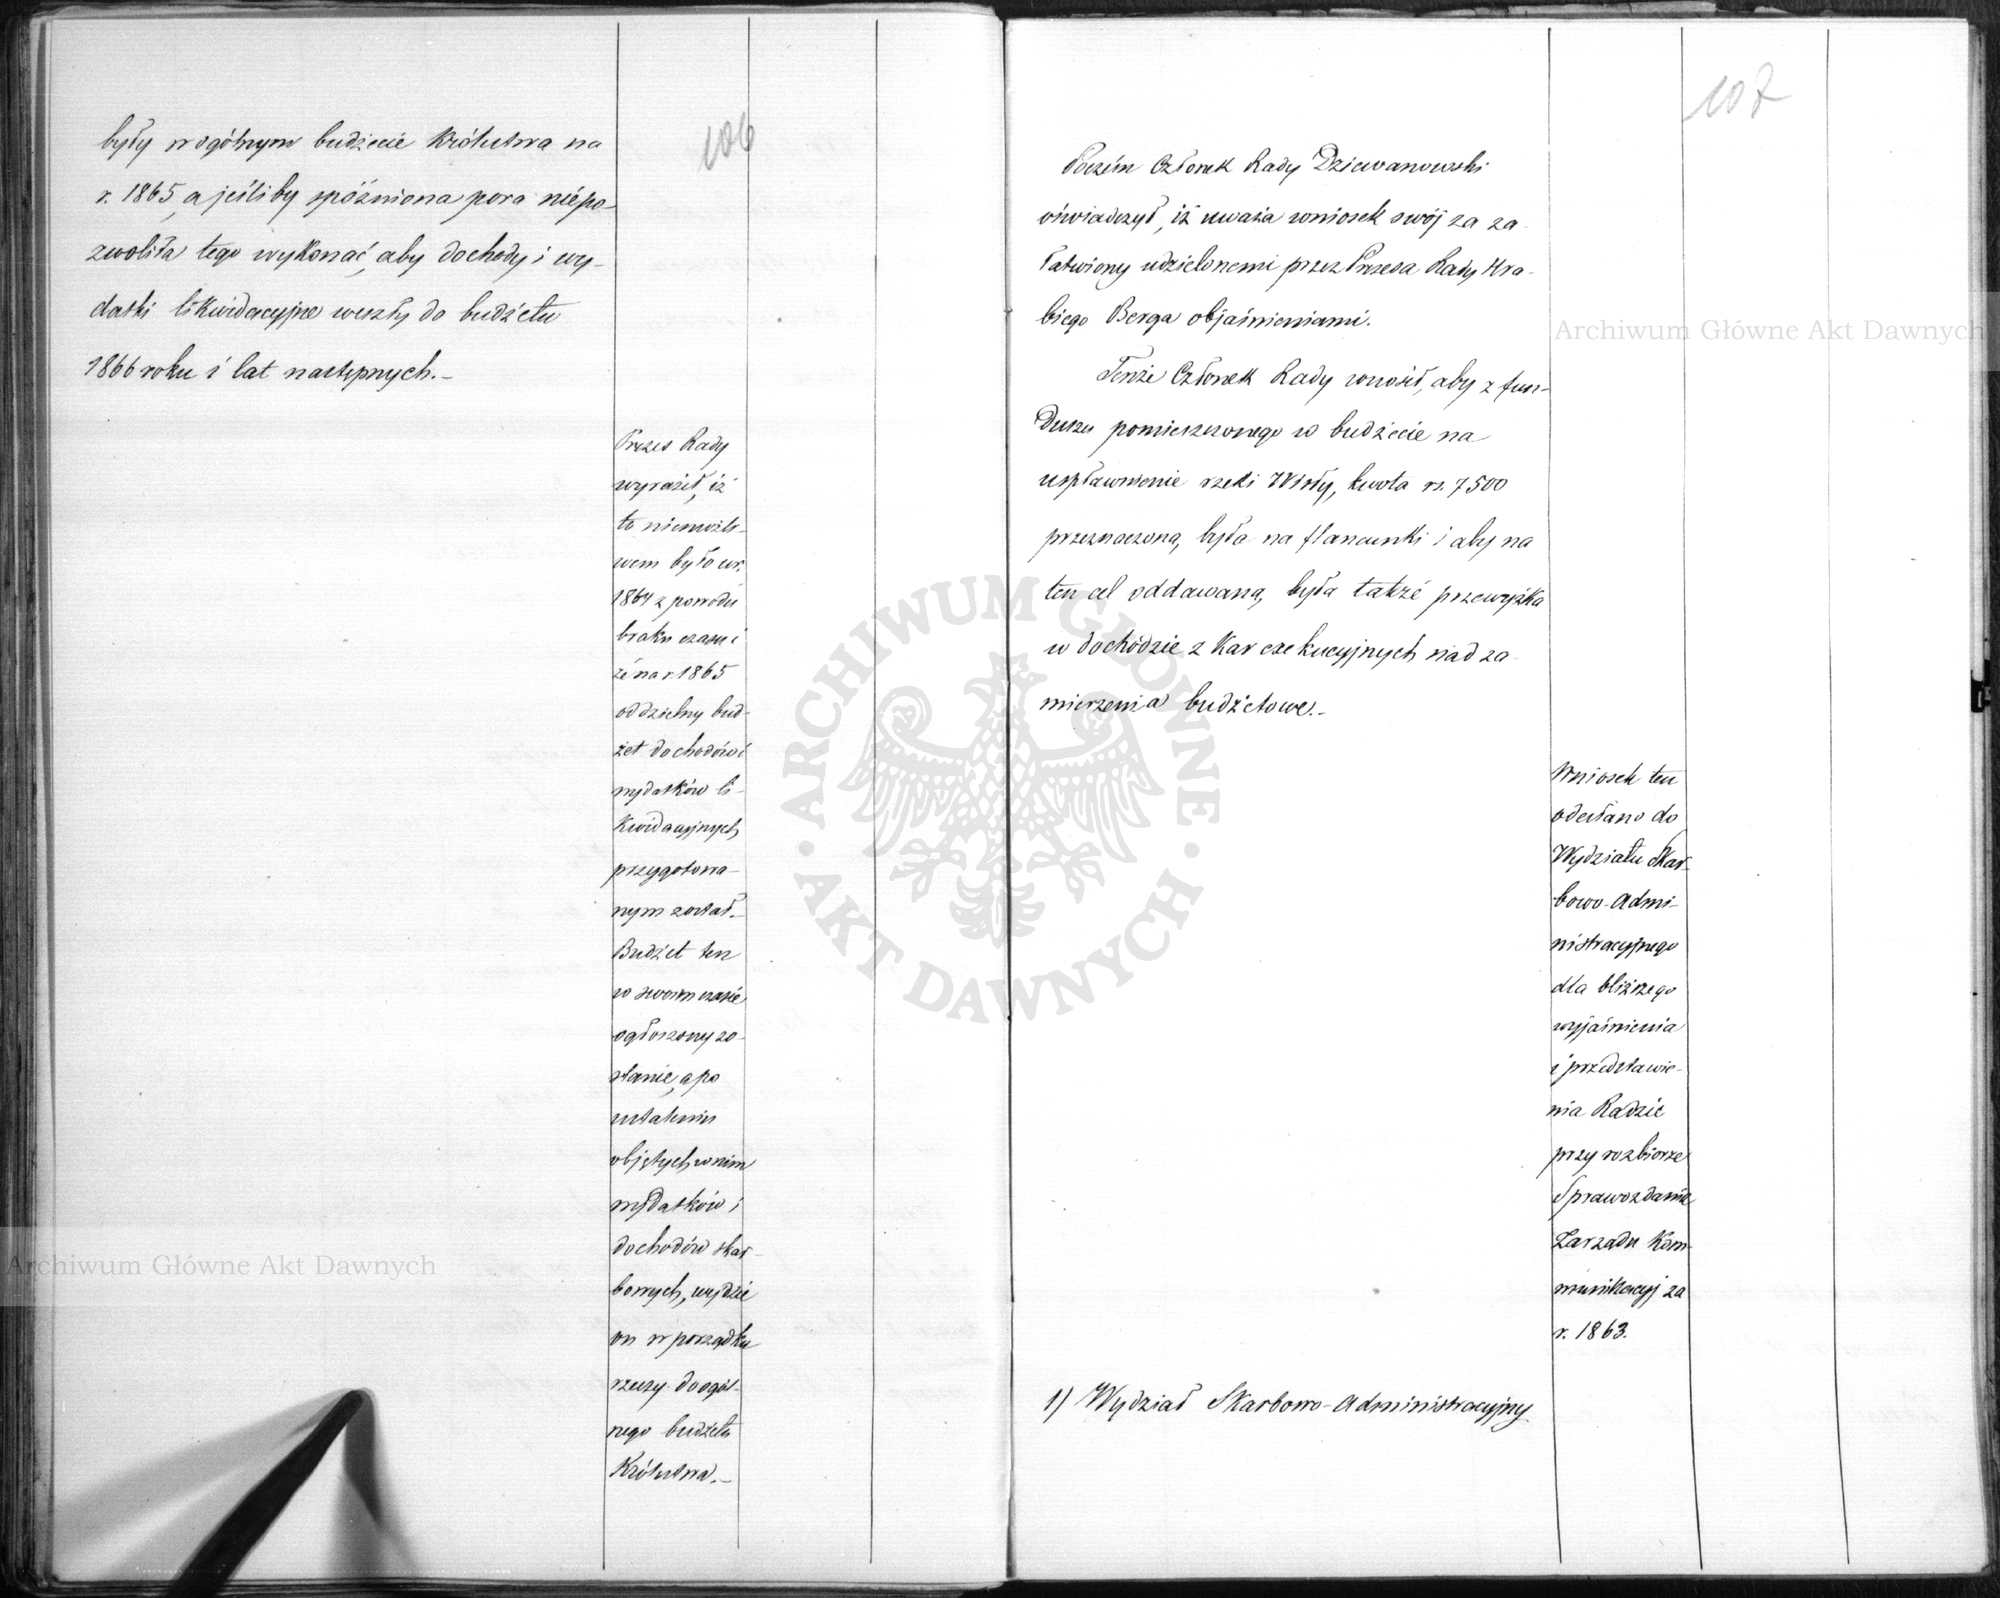 106
były w ogólnym budżecie Królestwa na
r. 1865, a jeśliby spóźniona pora niepo-
zwoliła tego wykonać, aby dochody i wy-
datki likwidacyjne weszły do budżetu
1866 roku i lat następnych.-
Prezes Rady
wyraził, iż
to niemożli-
wem było w r.
1864 z powodu
braku czasu i
że na r. 1865
oddzielny bud-
żet dochodów i
wydatków li-
kwidacyjnych
przygotowa-
nym został.-
Budżet ten
w swoim czasie
ogłoszony zo-
stanie, a po
ustaleniu
objętych w nim
wydatków i
dochodów skar-
bowych, wejdzie
on w porządku
rzeczy do ogól-
nego budżetu
Królestwa.-
107
Poczém Członek Rady Dziewanowski
oświadczył, iż uważa wniosek swój za za-
łatwiony udzielonemi przez Prezesa Rady Hra-
biego Berga objaśnieniami.
Tenże Członek Rady wnosił, aby z fun-
duszu pomieszczonego w budżecie na
uspławnienie rzeki Wisły, kwota rs. 7500
przeznaczoną, była na flancunki i aby na
ten cel oddawaną, była także przewyżka
w dochodzie z kar exekucyjnych nad za-
mierzenia budżetowe.-
Wniosek ten
odesłano do
Wydziału Skar-
bowo-Admi-
nistracyjnego
dla bliższego
wyjaśnienia
i przedstawie-
nia Radzie
przy rozbiorze
Sprawozdania
Zarządu Kom-
munikacyj za
r. 1863.
1) Wydział Skarbowo-Administracyjny
Archiwum Główne Akt Dawnych
Archiwum Główne Akt Dawnych
ARCHIWUM GŁÓWNE
AKT DAWNYCH